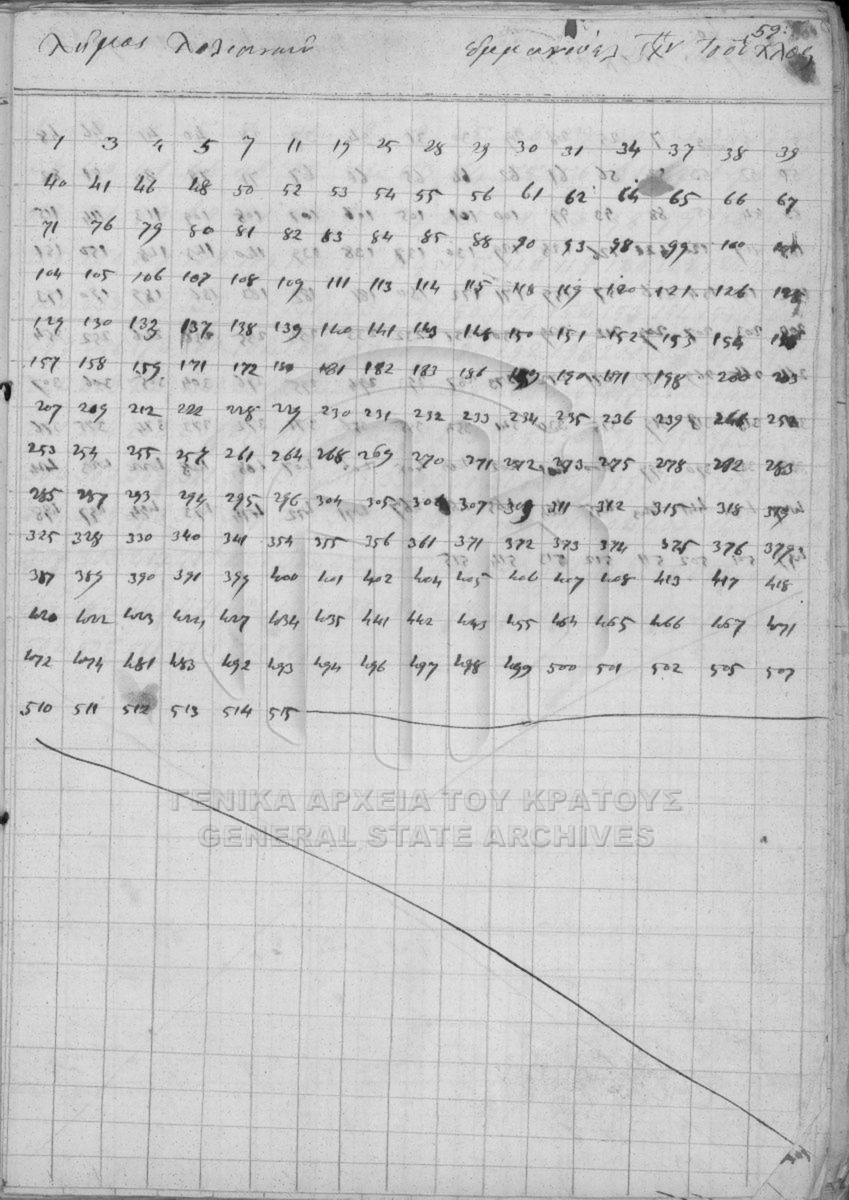 59.
Δῆμος
1 3 4 5 7 11 19 25 28 29 30 31 34 37 38 39
40 41 46 48 50 52 53 54 55 56 61 62 64 65 66 67
71 76 79 80 81 82 83 84 85 88 90 93 98 99 100
104 105 106 107 108 109 111 113 114 115 118 119 120 121 126
129 130 132 137 138 139 140 141 143 148 150 151 152 153 154
157 158 159 171 172 180 181 182 183 186 189 190 191 198 200 203
207 209 212 222 228 229 230 231 232 233 234 235 236 239
253 254 255 257 261 264 268 269 270 271 272 273 275 278 282 283
285 287 293 294 295 296 304 305 307 309 311 312 315 318 319
325 328 330 340 341 354 355 356 361 371 372 373 374 375 376 379
387 389 390 391 399 400 401 402 404 405 406 407 408 413 417 418
420 422 423 424 427 434 435 441 442 443 455 464 465 466 467 471
472 474 481 483 492 493 494 496 497 498 499 500 501 502 505 507
510 511 512 513 514 515
ΓΕΝΙΚΑ ΑΡΧΕΙΑ ΤΟΥ ΚΡΑΤΟΥΣ
GENERAL STATE ARCHIVES